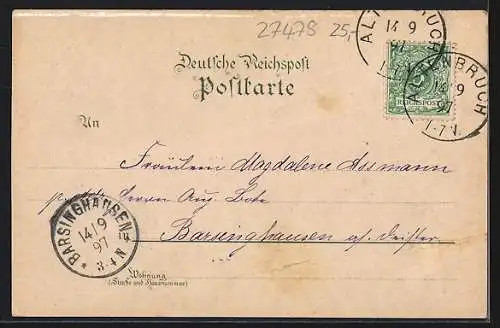 27478 25,-
ALTENBRUCH
14 9
97
1-7 V.
ALTENBRUCH
14 9
97
1-7 V.
REICHSPOST
Deutsche Reichspost
Postkarte
An
Fräulein Magdalene Assmann
Herrn Aug. Bote
Barsinghausen a/. Deister.
BARSINGHAUSEN
14/9
97
3-4 N
Wohnung
(Straße und Hausnummer)